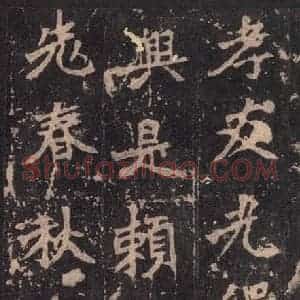 孝友光
興是賴
先春秋
Shufaziliao.com